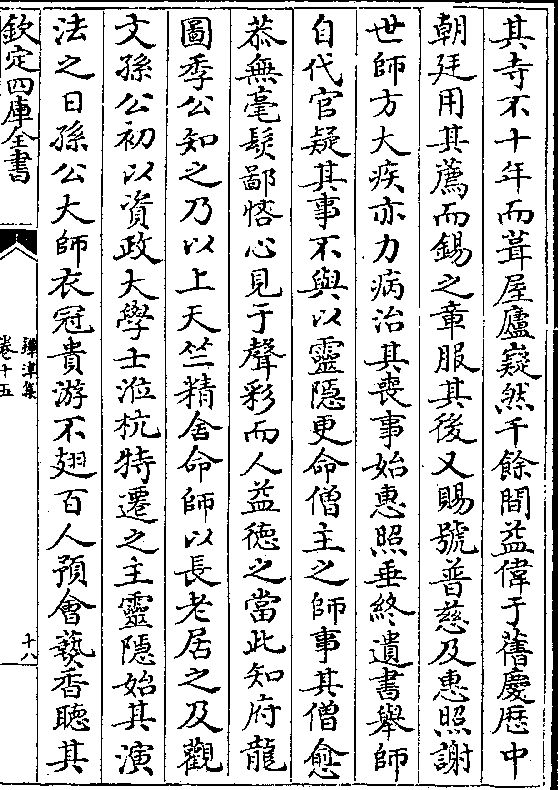 其寺不十年而葺屋廬嶷然千餘間益偉于舊慶厯中
朝廷用其薦而錫之章服其後又賜號普慈及惠照謝
世師方大疾亦力病治其喪事始惠照垂終遺書舉師
自代官疑其事不與以靈隱更命僧主之師事其僧愈
恭無毫髪鄙悋心見于聲彩而人益徳之當此知府龍
圖季公知之乃以上天竺精舍命師以長老居之及觀
文孫公初以資政大學士涖杭特遷之主靈隱始其演
法之日孫公大師衣冠貴游不翅百人預會爇香聽其
欽定四庫全書
鐔津集
卷十五
十八